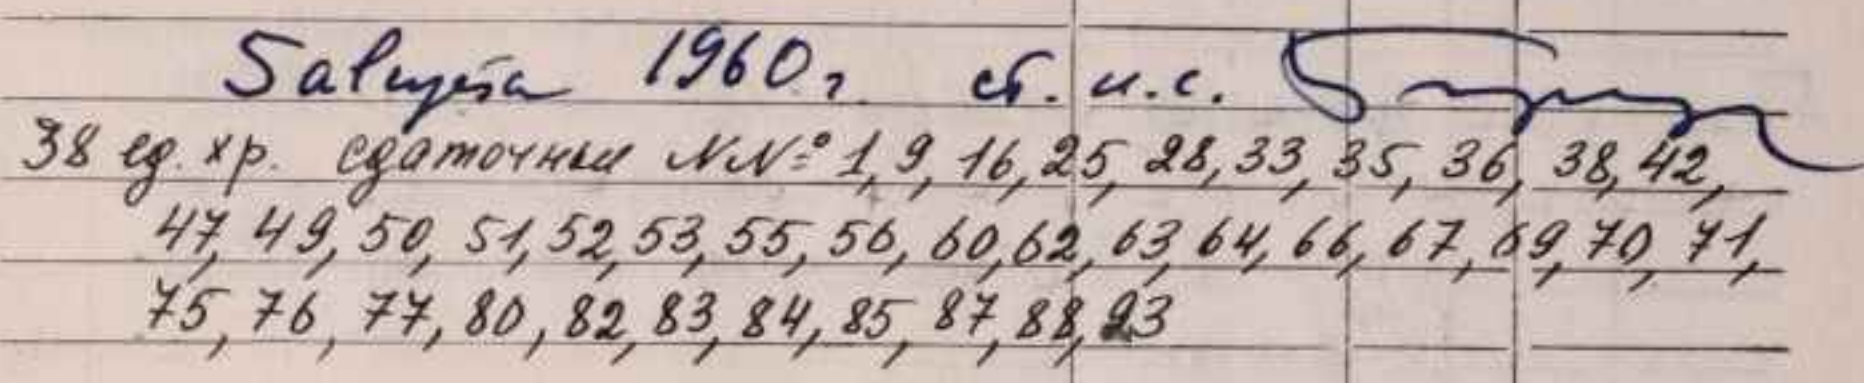 5 августа 1960 г. ст. н.с.
38 ед. хр. сдаточные NN=° 1, 9, 16, 25, 28, 33, 35, 36, 38, 42,
47, 49, 50, 51, 52, 53, 55, 56, 60, 62, 63, 64, 66, 67, 69, 70, 71,
75, 76, 77, 80, 82, 83, 84, 85, 87, 88, 93